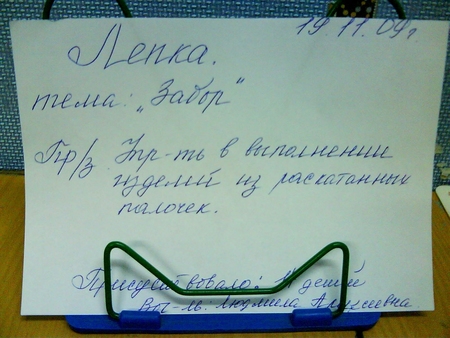 19.11.09г.
Лепка.
тема: „Забор"
Пр/з Упр-ть в выполнении
изделий из раскатанных
палочек.
Присутствовало: 11 детей
Восп-ль: Людмила Алексеевна